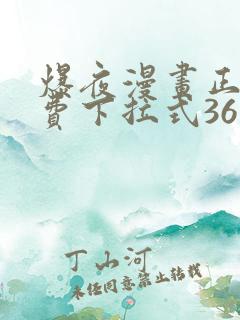 爆夜漫畫正
費下拉式36
丁山河
未经同意禁止转载